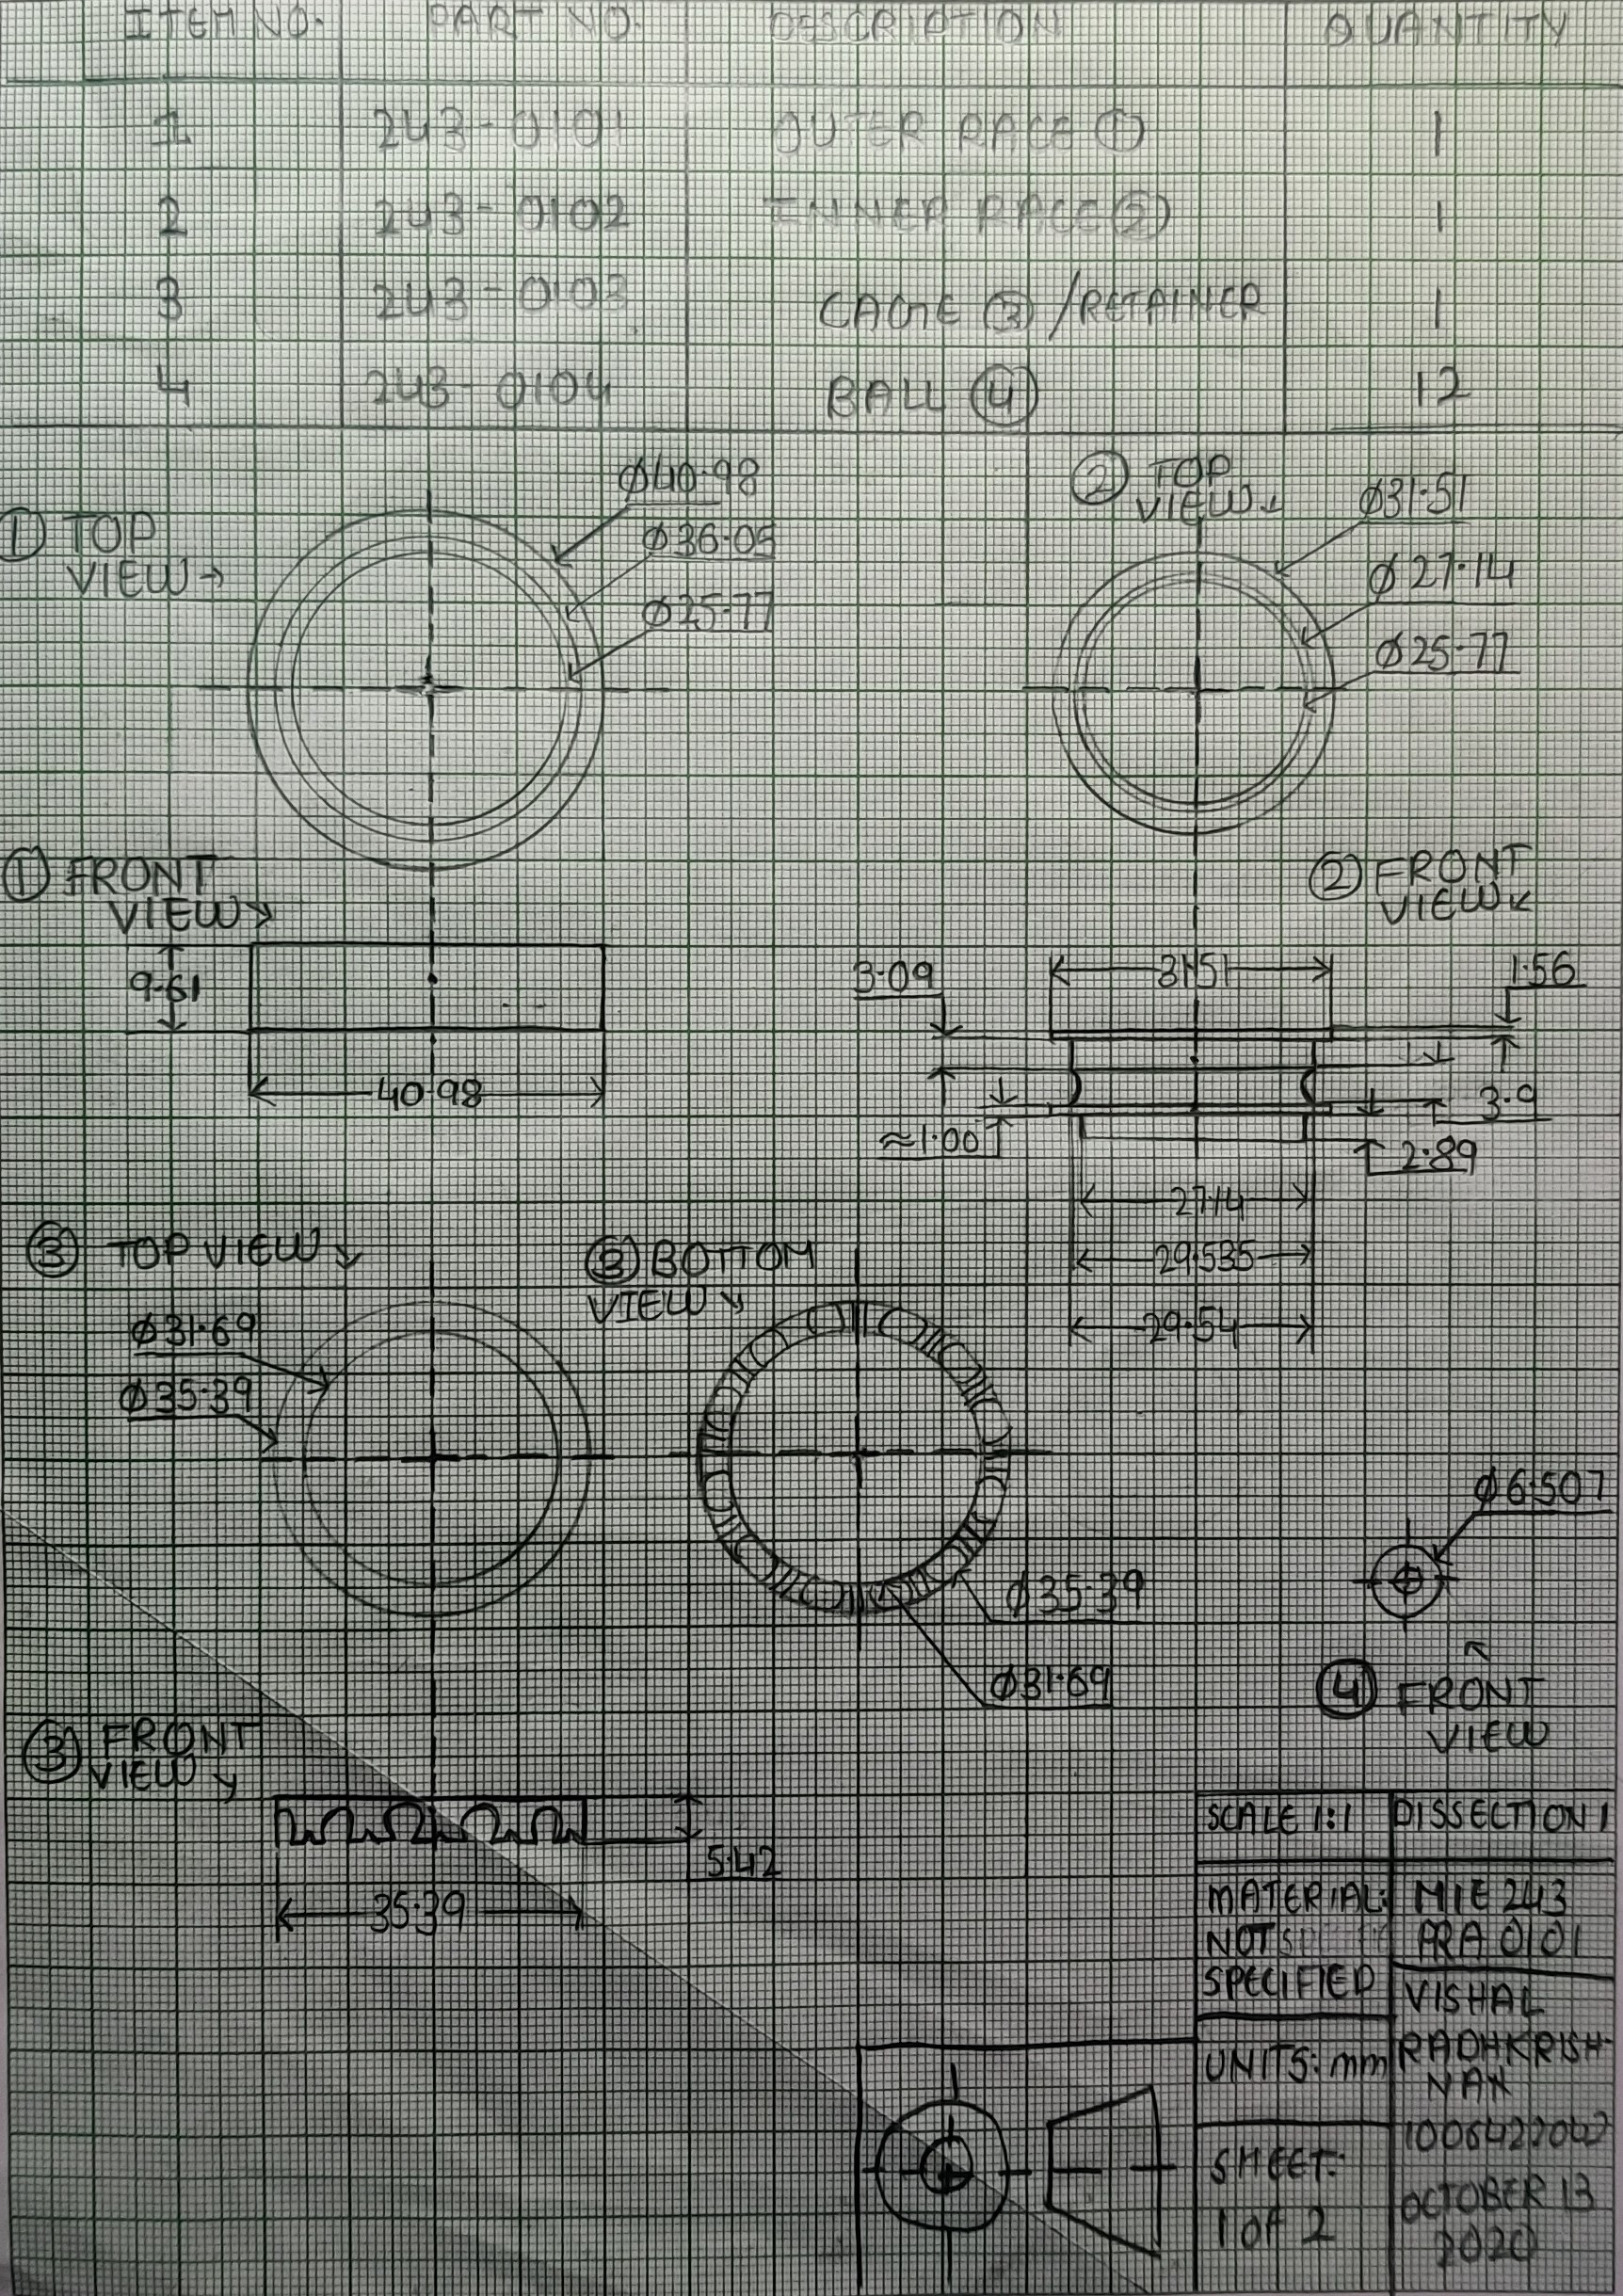 ITEM NO. PART NO. DESCRIPTION QUANTITY
1 243-0101 OUTER RACE ① 1
2 243-0102 INNER RACE ② 1
3 243-0103 CAGE ③ /RETAINER 1
4 243-0104 BALL ④ 12
① TOP
VIEW→
Ø40.98
Ø36.05
Ø25.77
② TOP
VIEW↓
Ø31.51
Ø27.14
Ø25.77
① FRONT
VIEW↘
9.61
40.98
② FRONT
VIEW↙
3.09
31.51
1.56
≈1.00
3.9
2.89
27.14
29.535
29.54
③ TOP VIEW↘
Ø31.69
Ø35.39
③ BOTTOM
VIEW↘
Ø35.39
Ø31.69
Ø6.507
④ FRONT
VIEW
③ FRONT
VIEW↘
5.42
35.39
SCALE 1:1
DISSECTION 1
MATERIAL:
NOT
SPECIFIED
MIE 243
PRA 0101
UNITS: mm
VISHAL
RADHKRISH-
NAN
SHEET:
1 of 2
OCTOBER 13
2020